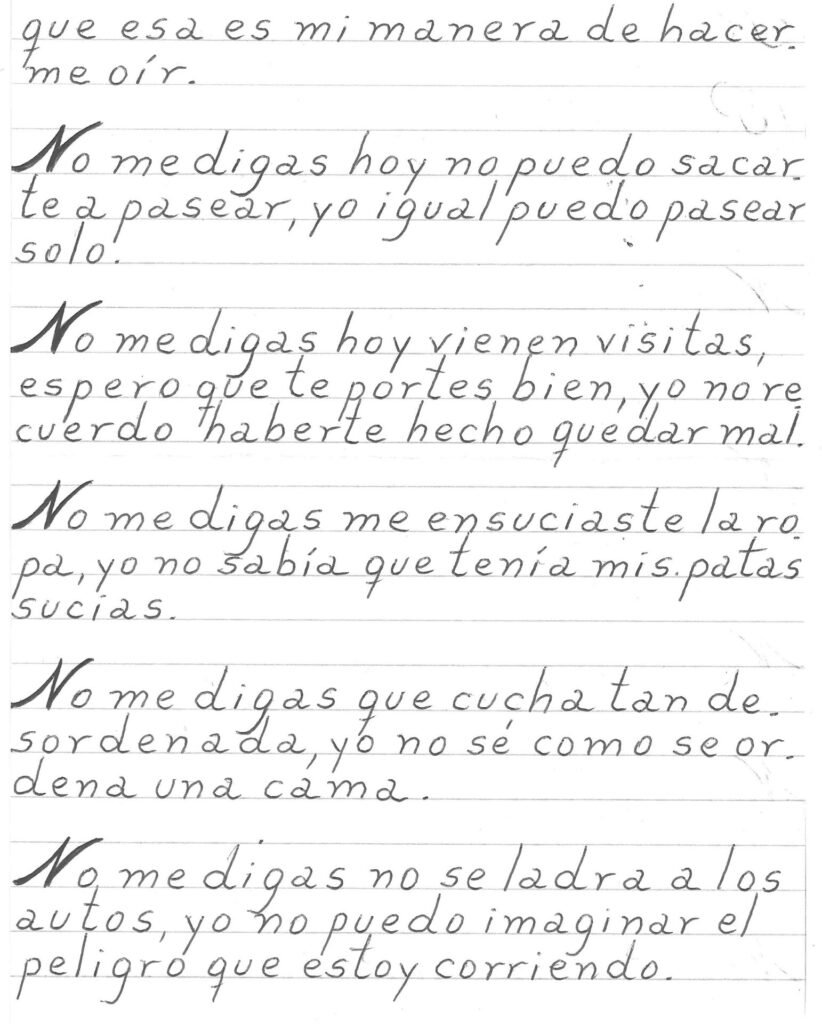 que esa es mi manera de hacer-
me oír.
No me digas hoy no puedo sacar-
te a pasear, yo igual puedo pasear
solo.
No me digas hoy vienen visitas,
espero que te portes bien, yo no re-
cuerdo haberte hecho quedar mal.
No me digas me ensuciaste la ro-
pa, yo no sabía que tenía mis patas
sucias.
No me digas que cucha tan de-
sordenada, yo no sé como se or-
dena una cama.
No me digas no se ladra a los
autos, yo no puedo imaginar el
peligro que estoy corriendo.